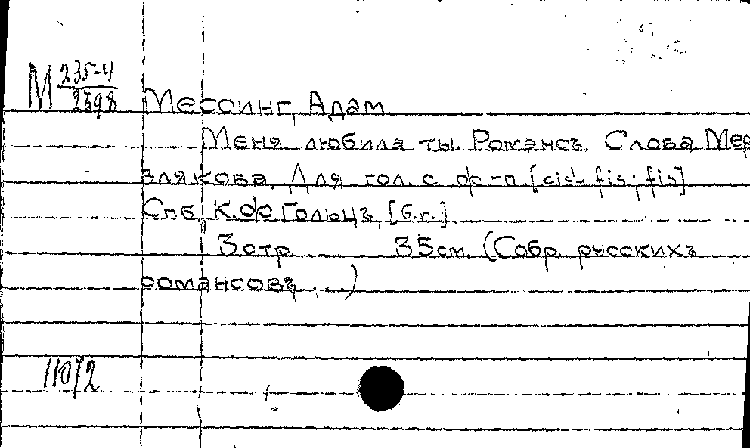 М 235-4
2598
Мессинг, Адам
Меня любила ты. Романсъ. Слова Мер
злякова. Для гол. с ф-п. [cis¹-fis²; fis]
Спб, К.Ф. Гольцъ, [б.г.].
3 стр. 35 см. (Собр. русскихъ
романсовъ ...)
11072